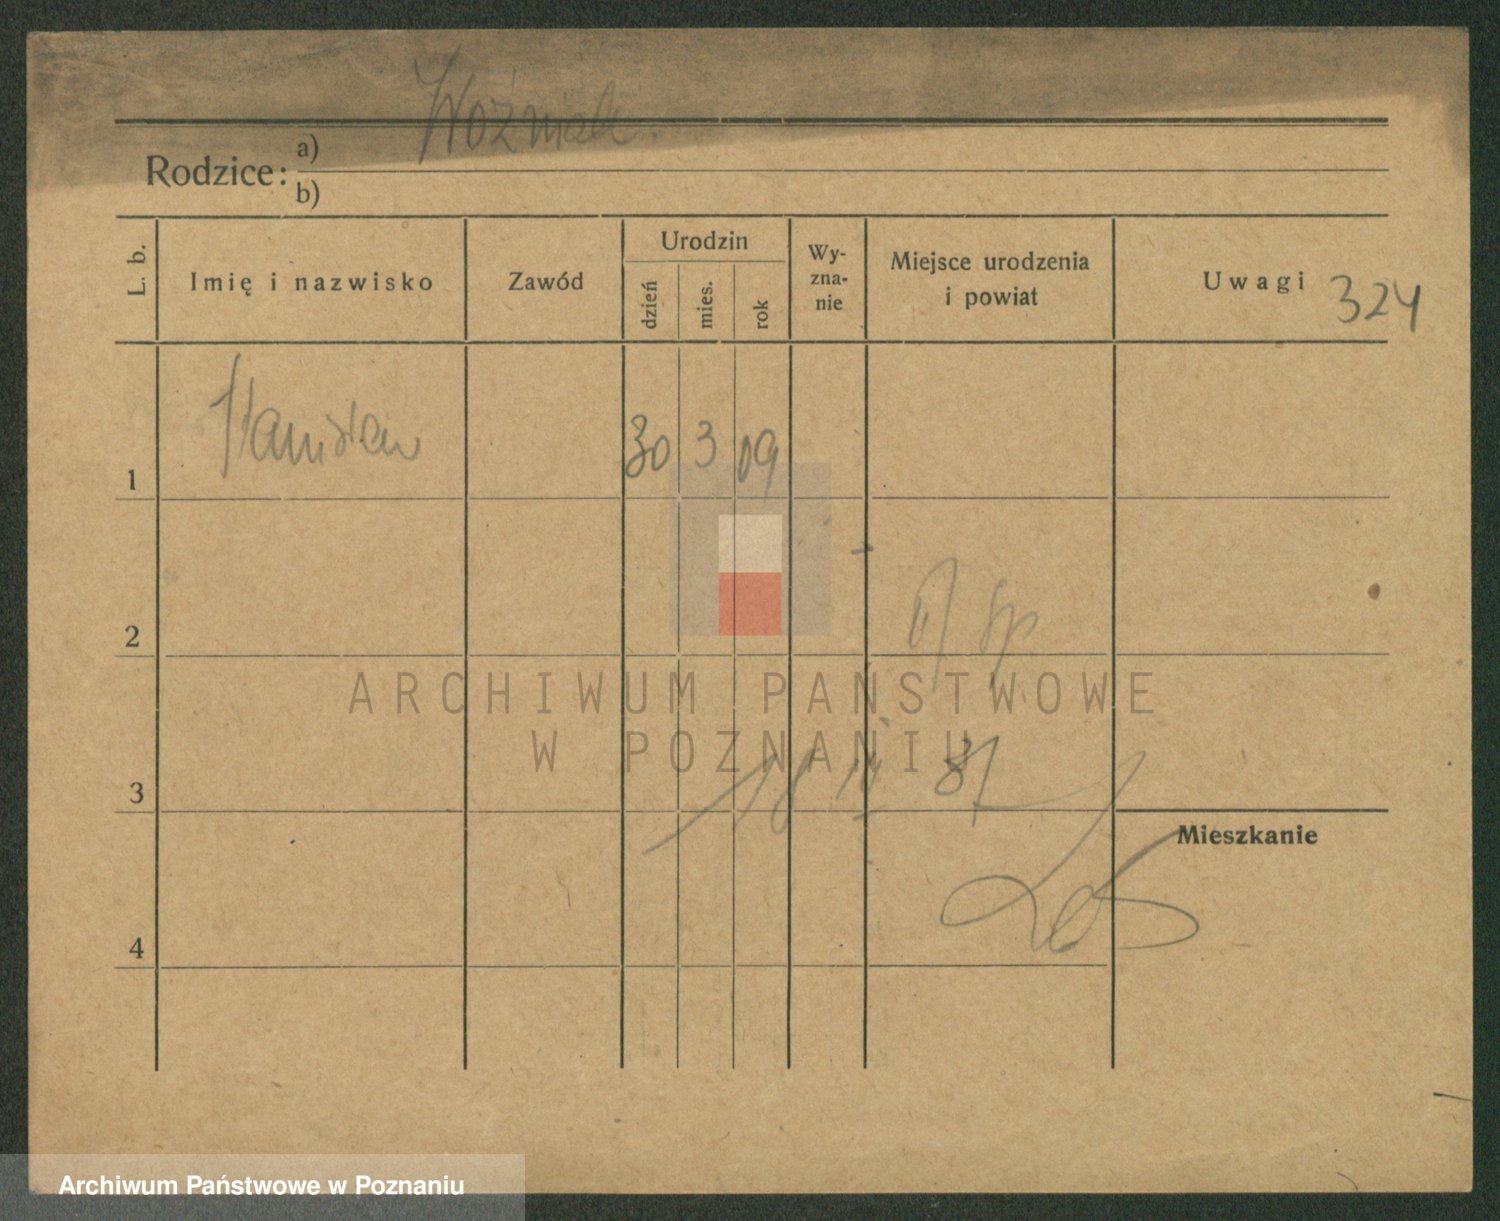 Woźniak.
Rodzice: a)
b)
L. b.
Imię i nazwisko
Zawód
Urodzin
dzień
mies.
rok
Wy-
zna-
nie
Miejsce urodzenia
i powiat
Uwagi
324
1 Stanisław 30 3 09
2
ARCHIWUM PAŃSTWOWE
W POZNANIU
3
Mieszkanie
4
Archiwum Państwowe w Poznaniu